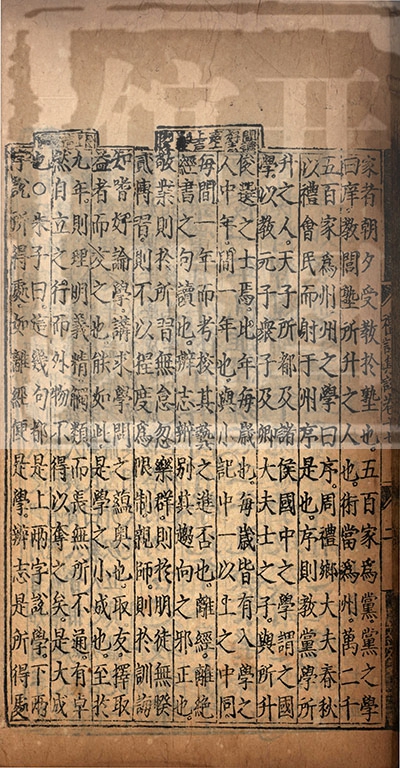 家者朝夕受教於塾也五百家爲黨黨之學
曰庠教閭塾所升之人也術當爲州萬二千
五百家爲州州之學曰序周禮鄉大夫春秋
以禮會民而射于州序是也序則教黨學所
升之人天子所都及諸侯國中之學謂之國
學以教元子衆子及卿大夫士之子與所升
俊選之士焉比年每歲也每歲皆有入學之
人中年間一年也與小記中一以上之中同
每間一年而考校其藝之進否也離經離絶
經書之句讀也辨志辨别其趨向之邪正也
敬業則於所習無怠忽樂群則於朋徒無睽
貳博習則不以程度爲限制親師則於訓誨
知皆好論學講求學問之縕奥也取友擇取
益者而交之也能如此是學之小成也至於
九年則理明義精觸類而長無所不通有卓
然自立之行而外物不得以奪之矣是大成
也○朱子曰這幾句都是上兩字說學下兩
字說所得處如離經便是學辨志是所得處